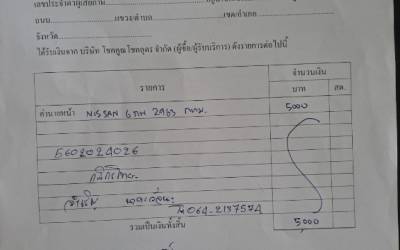 เลขประจำตัวผู้เสียภาษี
ถนน แขวง/ตำบล เขต/อำเภอ
จังหวัด
ได้รับเงินจาก บริษัท โชคคูณโชคอุดร จำกัด (ผู้ซื้อ/ผู้รับบริการ) ดังรายการต่อไปนี้
รายการ จำนวนเงิน
บาท สต.
ค่านายหน้า NISSAN 6กท 2963 กทม. 5000
5602024026
กสิกรไทย
โทร 064-2137574
รวมเป็นเงินทั้งสิ้น 5,000